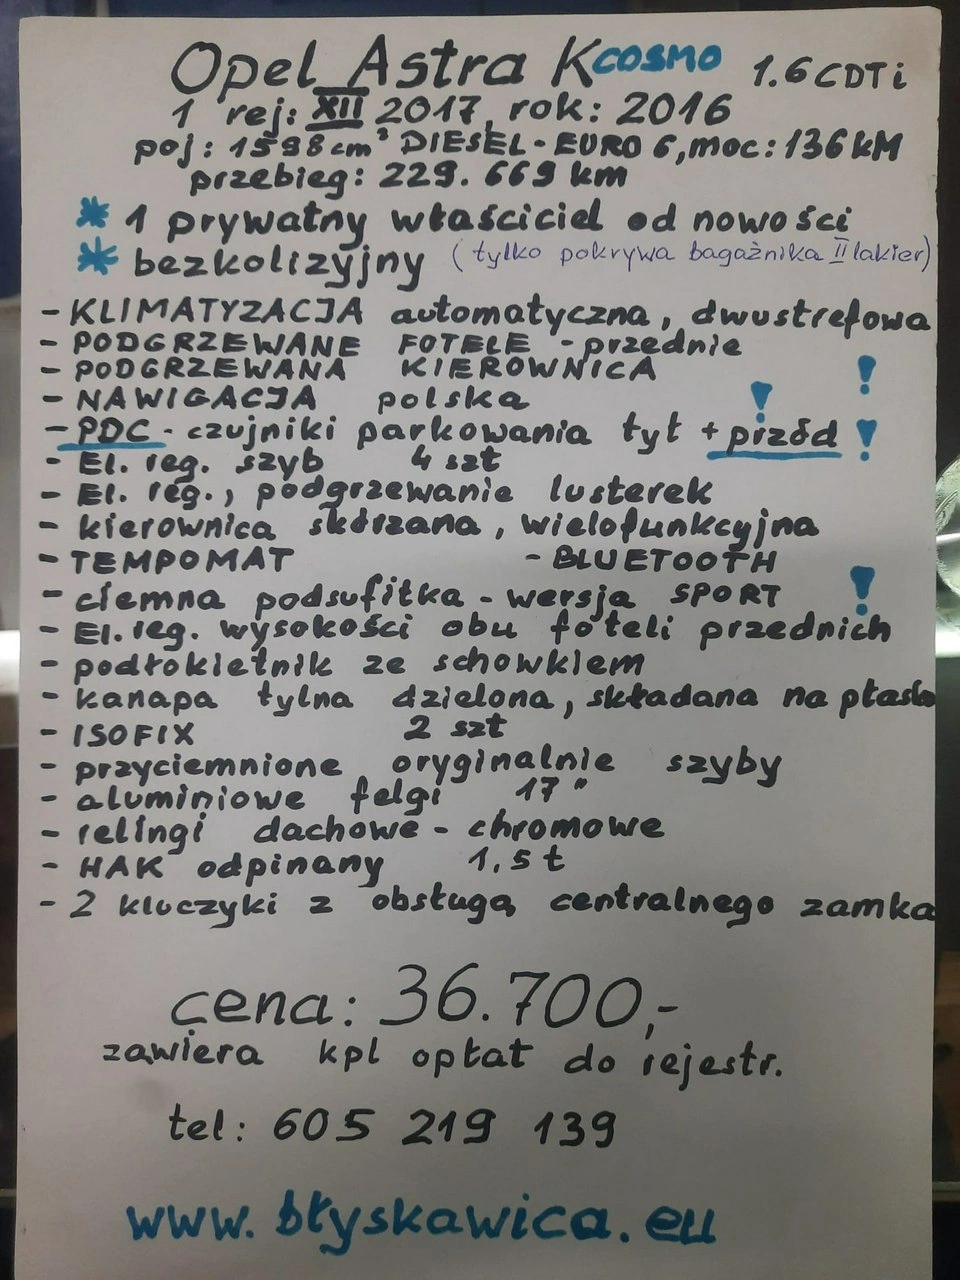 Opel Astra K COSMO 1.6 CDTi
1 rej: XII 2017, rok: 2016
poj: 1598 cm³ DIESEL - EURO 6, moc: 136 kM
przebieg: 229.669 km
* 1 prywatny właściciel od nowości
* bezkolizyjny (tylko pokrywa bagażnika II lakier)
- KLIMATYZACJA automatyczna, dwustrefowa
- PODGRZEWANE FOTELE - przednie
- PODGRZEWANA KIEROWNICA !
- NAWIGACJA polska !
- PDC - czujniki parkowania tył + przód !
- El. reg. szyb 4 szt
- El. reg., podgrzewanie lusterek
- kierownica skórzana, wielofunkcyjna
- TEMPOMAT - BLUETOOTH
- ciemna podsufitka - wersja SPORT !
- El. reg. wysokości obu foteli przednich
- podłokietnik ze schowkiem
- kanapa tylna dzielona, składana na płasko
- ISOFIX 2 szt
- przyciemnione oryginalnie szyby
- aluminiowe felgi 17"
- relingi dachowe - chromowe
- HAK odpinany 1,5 t
- 2 kluczyki z obsługą centralnego zamka
cena: 36.700,-
zawiera kpl opłat do rejestr.
tel: 605 219 139
www.błyskawica.eu